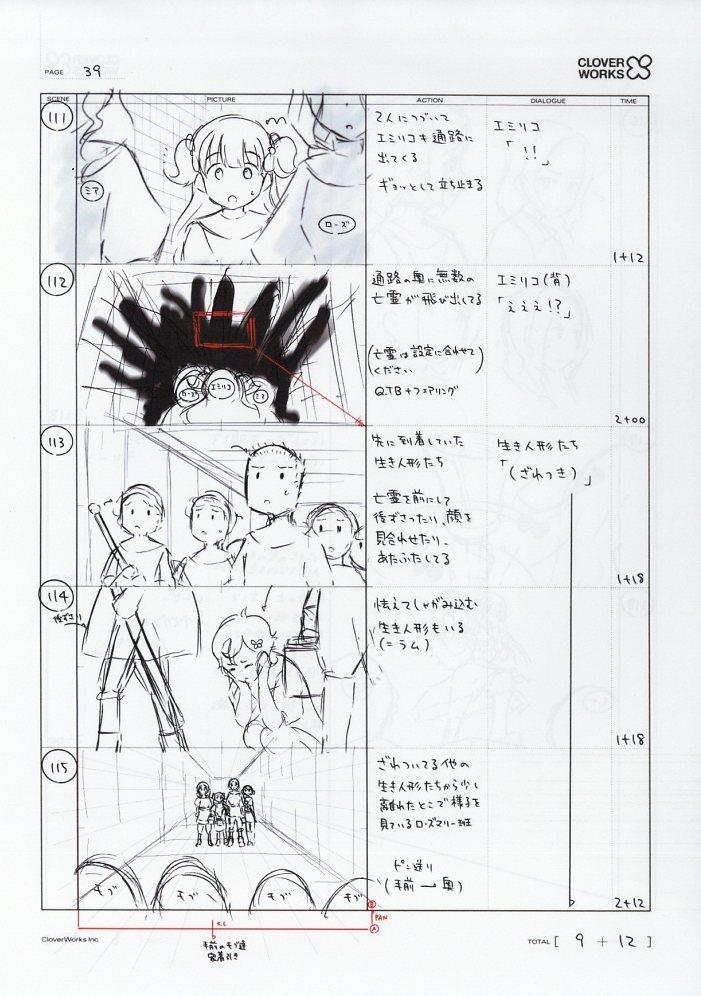 PAGE 39
CLOVER
WORKS
SCENE PICTURE ACTION DIALOGUE TIME
111
ミア
ローズ
2人につづいて
エミリコも通路に
出てくる
ギョッとして立ち止まる
エミリコ
「!!」
1+12
112
ローズ
エミリコ
ミア
通路の奥に無数の
亡霊が飛び出してる
(亡霊は設定に合わせて
ください)
Q.T.B+フェアリング
エミリコ(背)
「えええ!?」
2+00
113
先に到着していた
生き人形たち
亡霊を前にして
後ずさったり、顔を
見合わせたり、
あたふたしてる
生き人形たち
「(ざわつき)」
1+18
114
後ずさり
怯えてしゃがみ込む
生き人形もいる
(=ラム)
1+18
115
モブ
モブ
モブ
モブ
ざわついてる他の
生き人形たちから少し
離れたとこで様子を
見ているローズマリー班
ピン送り
(手前→奥)
2+12
B
PAN
A
S.L
手前のモブ達
密着引き
CloverWorks Inc.
TOTAL [ 9 + 12 ]